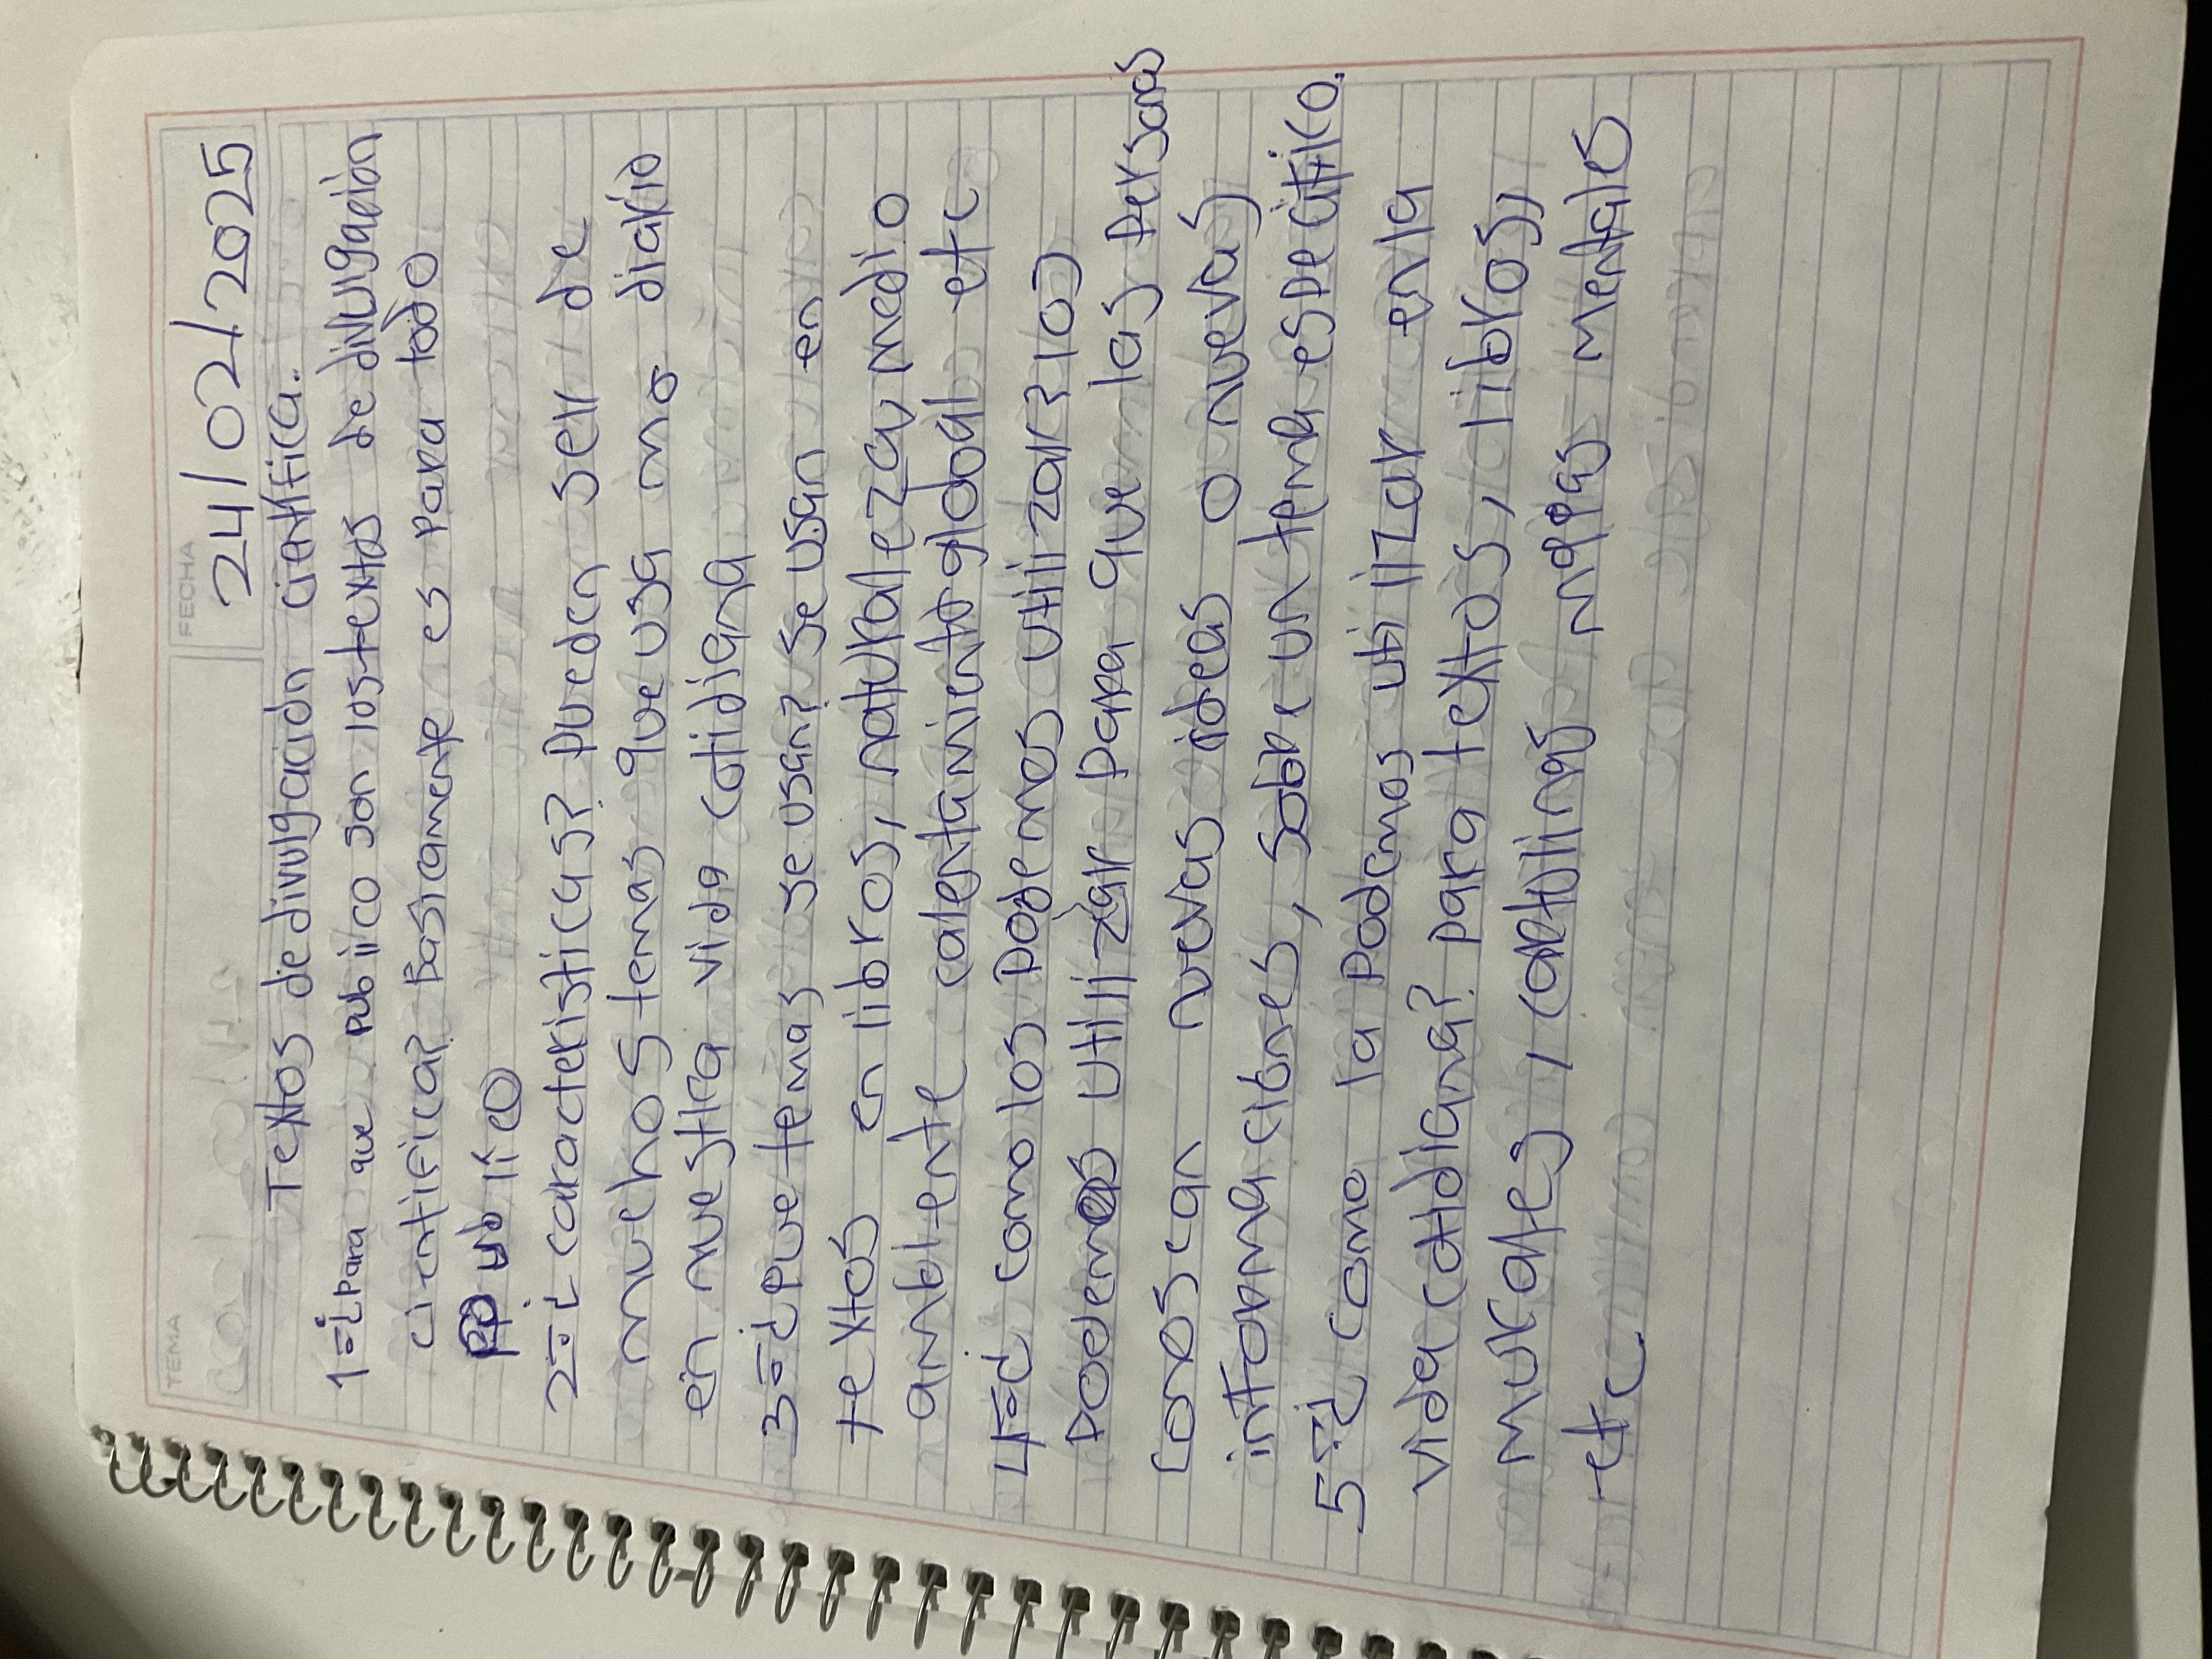 TEMA
FECHA
24/02/2025
Textos de divulgación científica.
1=¿Para que publico son los textos de divulgación
cientifica? Basicamente es para todo
publico
2=¿caracteristicas? pueden ser de
muchos temas que usa mo diario
en nuestra vida cotidiana
3=¿Que temas se usan? se usan en
textos en libros, naturaleza, medio
ambiente calentamiento global etc
4=¿como los podemos utilizarlos
podemos utilizar para que las personas
conoscan nuevas ideas o nuevas
informaciones, sobre un tema específico.
5=¿como la podemos utilizar en la
vida cotidiana? para textos, libros,
murales, cartulinas mapas mentales
etc.